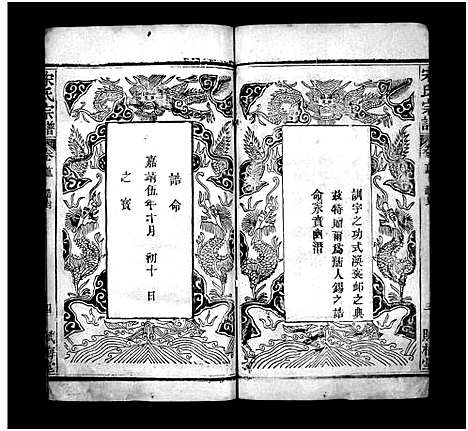 訓字之功式渙褒邮之典
茲特贈爾爲孺人錫之誥
命永賁幽潛
誥命
嘉靖伍年十月初十日
之寶
宋氏宗譜
宋氏宗譜